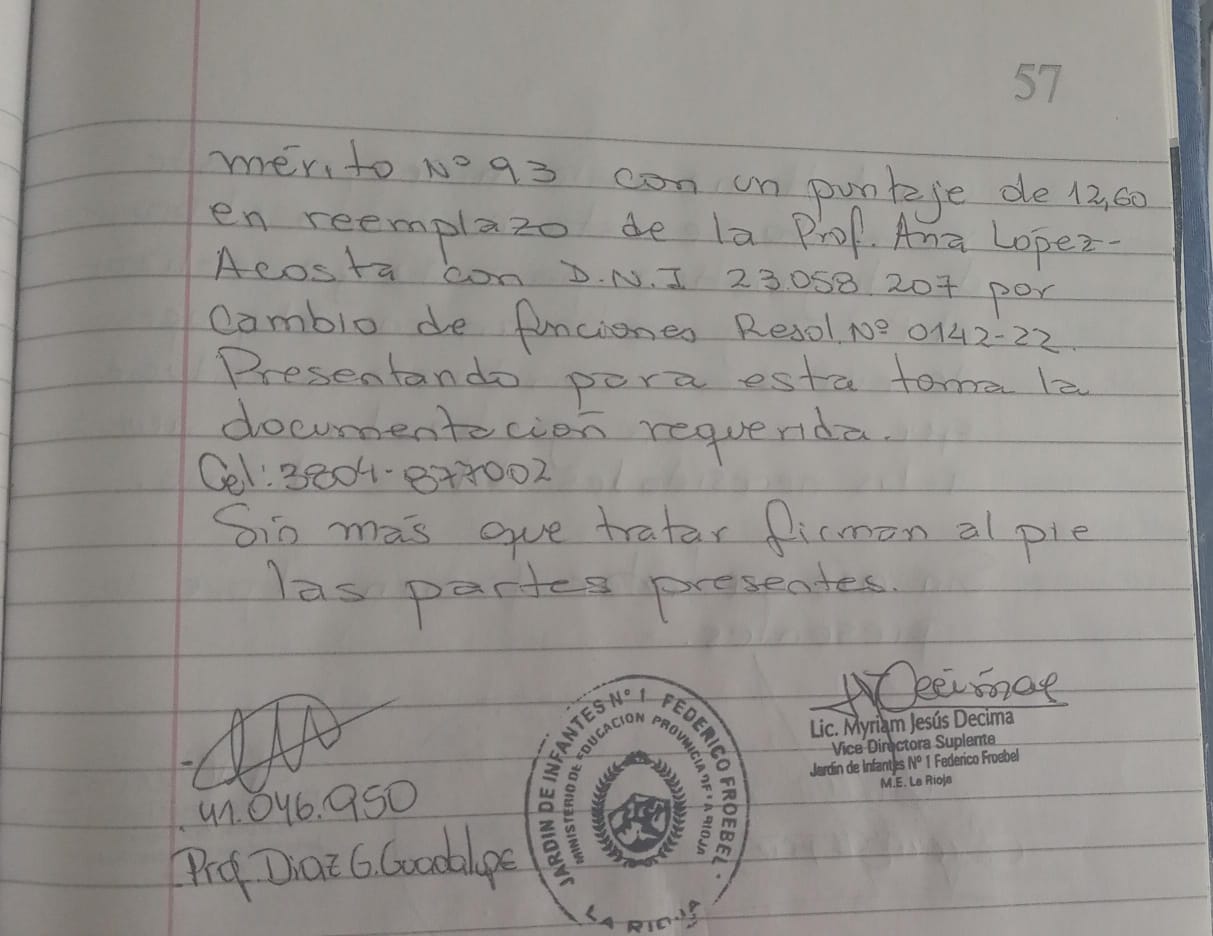 57
mérito Nº 93 con un puntaje de 12,60
en reemplazo de la Prof. Ana López-
Acosta con D.N.I 23.058.207 por
Cambio de funciones Resol. Nº 0142-22.
Presentando para esta toma la
documentación requerida.
Cel: 3804-877002
Sin más que tratar firman al pie
las partes presentes.
41.046.950
Prof. Diaz G. Guadalupe
JARDIN DE INFANTES Nº 1 FEDERICO FROEBEL
MINISTERIO DE EDUCACION PROVINCIA DE LA RIOJA
LA RIOJA
Lic. Myriam Jesús Decima
Vice Directora Suplente
Jardín de Infantes Nº 1 Federico Froebel
M.E. La Rioja